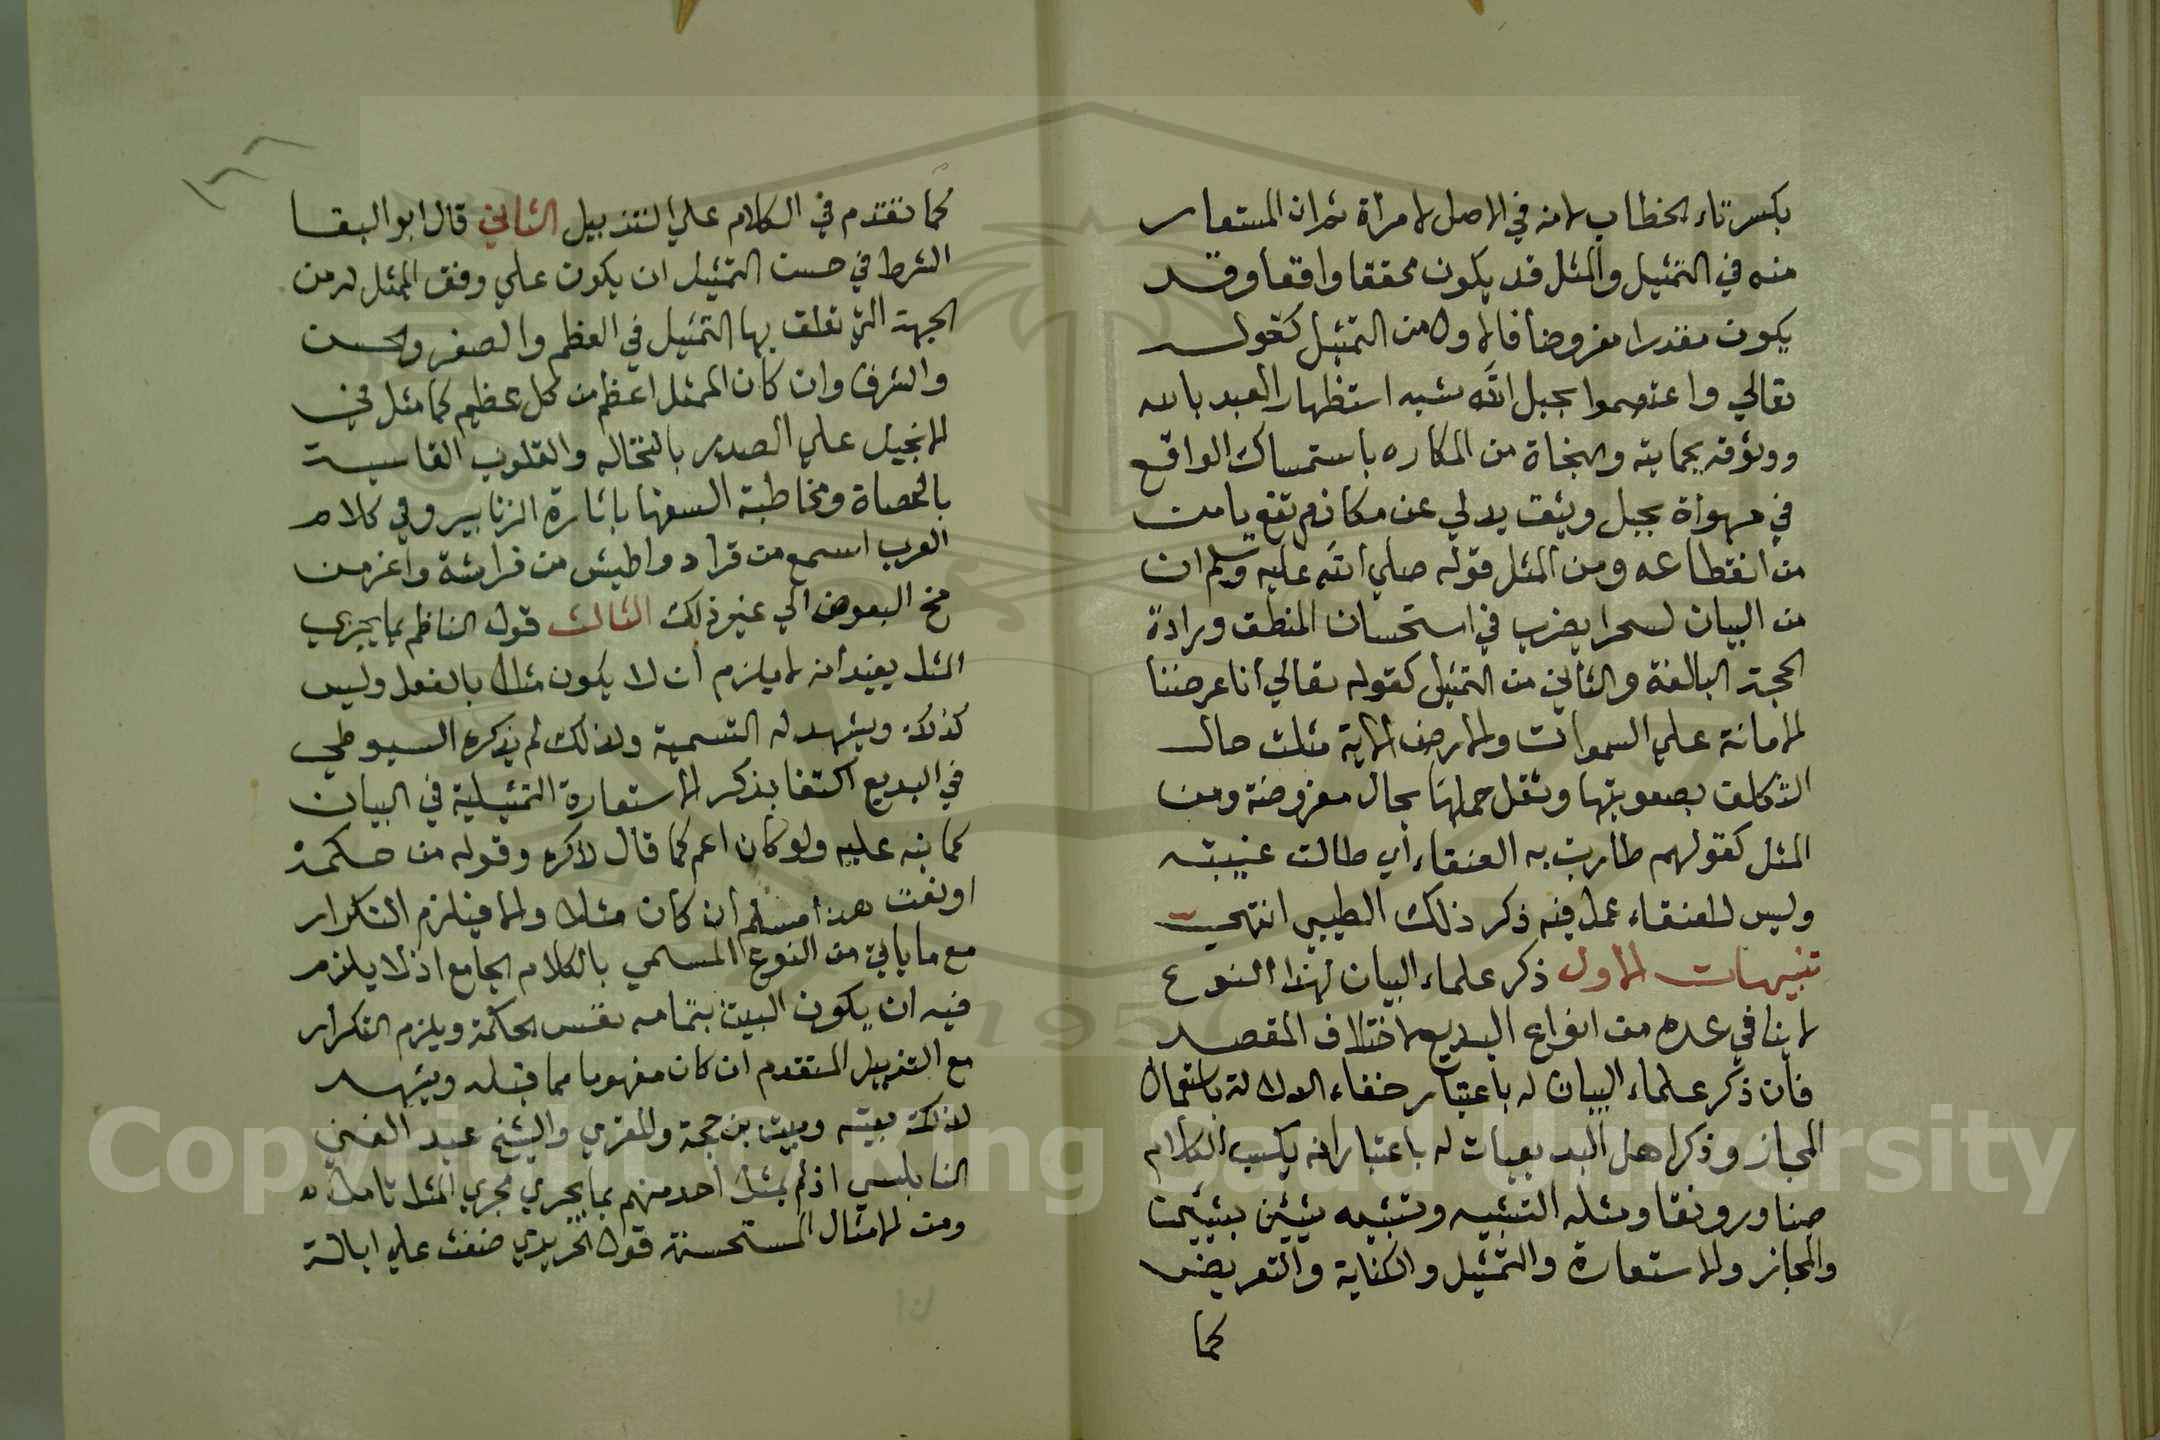 بكسر تاء الخطاب لانه في الاصل لامرأة ثم ان المستعار
منه في التمثيل والمثل قد يكون محققا واقعا وقد
يكون مقدرا مفروضا فالاول من التمثيل كقوله
تعالي واعتصموا بحبل الله شبه استظهار العبد بالله
ووثوقه بحمايته والنجاة من المكاره باستمساك الواقع
في مهواة بحبل وثيق يدلي من مكان مرتفع يامن
من انقطاعه ومن المثل قوله صلي الله عليه وسلم ان
من البيان لسحرا يضرب في استحسان المنطق وإرادة
الحجة البالغة والثاني من التمثيل كقوله تعالي انا عرضنا
الامانة علي السموات والارض الاية مثلت حال
التكليف بصعوبتها وثقل حملها بحال مفروضة ومن
المثل كقولهم طارت به العنقاء أي طالت غيبته
وليس للعنقاء عمل فيه ذكر ذلك الطيبي انتهي
تنبيهات الاول ذكر علماء البيان لهذا النوع
لا ينافي عده من انواع البديع لاختلاف المقصد
فان ذكر علماء البيان له باعتبار خفاء الدلالة باستعمال
المجاز وذكر اهل البديعيات له باعتبار انه يكسب الكلام
ورونقا ومثله التشبيه وتشبيه شيئين بشيئين
والمجاز والاستعارة والتمثيل والكناية والتعريض
كما
كما تقدم في الكلام علي التذييل الثاني قال ابو البقا
الشرط في حسن التمثيل ان يكون علي وفق الممثل له من
الجهة التي تعلق بها التمثيل في العظم والصغر والحسن
والشرف وان كان الممثل اعظم من كل عظيم كما مثل في
الانجيل علي الصدر بالنخالة والقلوب القاسية
بالحصاة ومخاطبة السفها باثارة الزنابير وفي كلام
العرب اسمع من قراد واطيش من فراشة واعز من
مخ البعوض الي غير ذلك الثالث قول الناظم بما يجري
المثل يفيد انه لا يلزم أن لا يكون مثلا بالفعل وليس
كذلك ويشهد له التسمية ولذلك لم يذكره السيوطي
في البديع اكتفا بذكر الاستعارة التمثيلية في البيان
كما نبه عليه ولو كان اعم كما قال لذكره وقوله من حكمة
او نعت هذا مسلم ان كان مثلا والا فيلزم التكرار
مع ما ياتي من النوع المسمي بالكلام الجامع اذ لا يلزم
فيه ان يكون البيت بتمامه نفس الحكمة ويلزم التكرار
مع التذييل المتقدم ان كان مفهوما مما قبله ويشهد
لذلك بيته وبيت بن حجة والمقري والشيخ عبد الغني
النابلسي اذ لم يمثل احد منهم بما يجري مجري المثل تامل
ومن الامثال المستحسنة قول الحريري ضغث علي ابالة
Copyright © King Saud University
1957